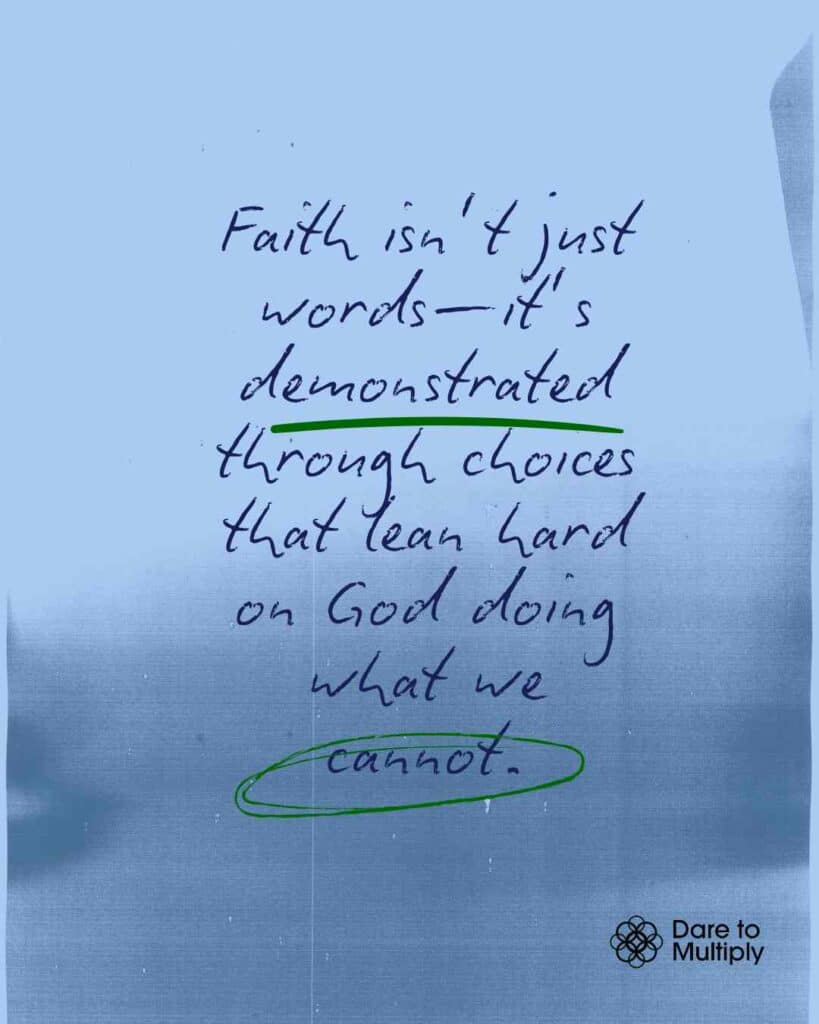 Faith isn't just
words—it's
demonstrated
through choices
that lean hard
on God doing
what we
cannot.
Dare to
Multiply